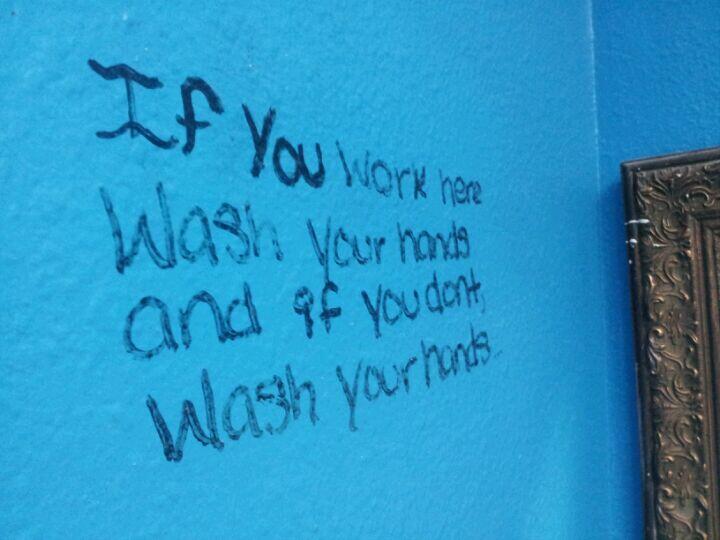 If You work here
Wash your hands
and if you dont,
Wash your hands..